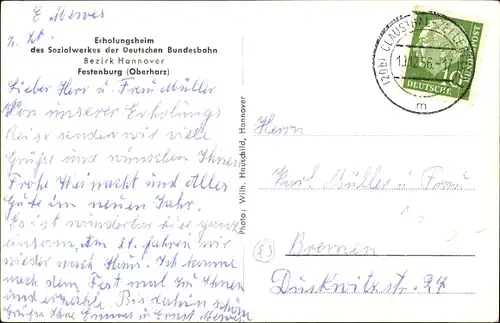 E. Mewes
z. Zt.
Erholungsheim
des Sozialwerkes der Deutschen Bundesbahn
Bezirk Hannover
Festenburg (Oberharz)
Lieber Herr u. Frau Müller
Von unserer Erholungs
Reise senden wir viele
Grüße und wünschen Ihnen
Frohe Weinacht und Alles
Gute im neuen Jahr.
Es ist wunderbar hier ganz
einsam, Am 21. fahren wir
wieder nach Haus. Ich komme
nach dem Fest mal zu Ihnen
und erzähle. Bis dahin schöne
Grüße Ihre Emma u Ernst Mewes
Photo: Wilh. Hauschild, Hannover
(20b) CLAUSTHAL-ZELLERFELD
m
10
DEUTSCHE
BUNDESPOST
Herrn
Karl Müller u Frau
Bremen
Duckwitzstr. 27